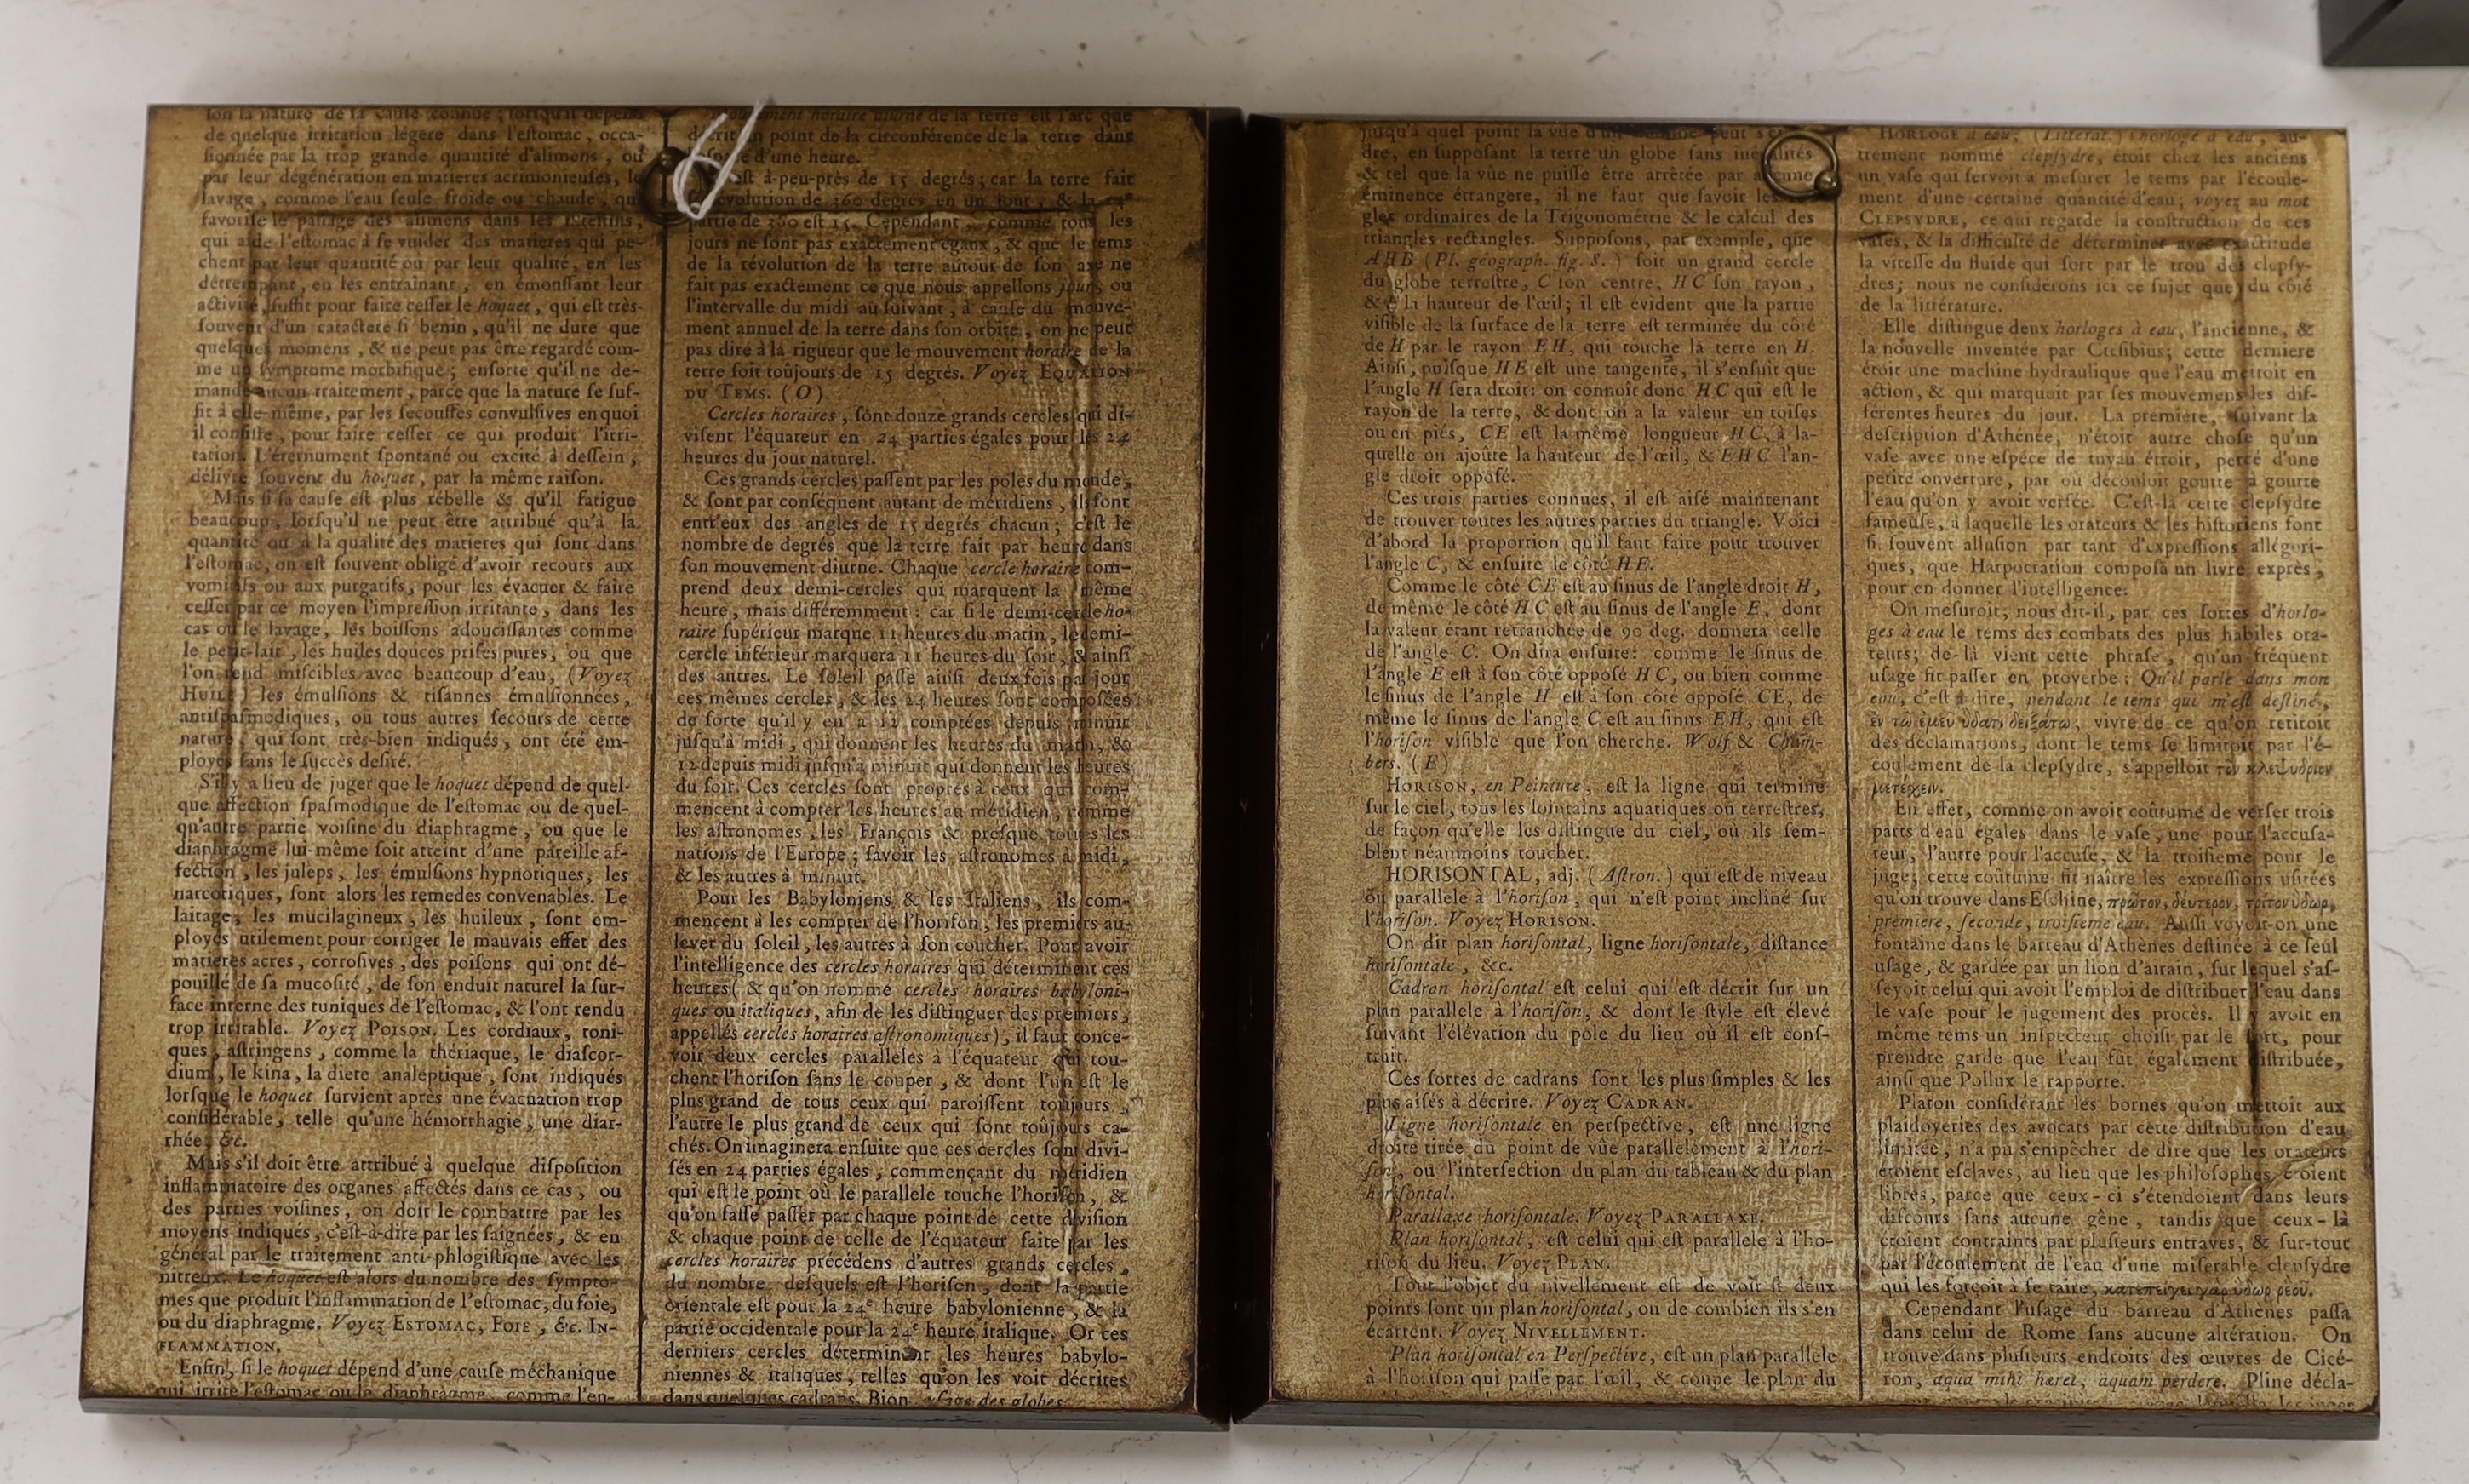 ſon la nature de la cauſe connue ; lorſqu'il dépend
de quelque irritation légere dans l'eſtomac, occa-
ſionnée par la trop grande quantité d'alimens, ou
par leur dégénération en matieres acrimonieuſes, le
lavage, comme l'eau ſeule froide ou chaude, qui
favoriſe le paſſage des alimens dans les inteſtins,
qui aide l'eſtomac à ſe vuider des matieres qui pe-
chent par leur quantité ou par leur qualité, en les
détrempant, en les entraînant, en émouſſant leur
activité, ſuffit pour faire ceſſer le hoquet, qui eſt très-
ſouvent d'un caractere ſi benin, qu'il ne dure que
quelques momens, & ne peut pas être regardé com-
me un ſymptome morbifique ; enſorte qu'il ne de-
mande aucun traitement, parce que la nature ſe ſuf-
fit à elle-même, par les ſecouſſes convulſives en quoi
il conſiſte, pour faire ceſſer ce qui produit l'irri-
tation. L'éternument ſpontané ou excité à deſſein,
délivre ſouvent du hoquet, par la même raiſon.
Mais ſi ſa cauſe eſt plus rébelle & qu'il fatigue
beaucoup, lorſqu'il ne peut être attribué qu'à la
quantité ou à la qualité des matieres qui ſont dans
l'eſtomac, on eſt ſouvent obligé d'avoir recours aux
vomitifs ou aux purgatifs, pour les évacuer & faire
ceſſer par ce moyen l'impreſſion irritante, dans les
cas où le lavage, les boiſſons adouciſſantes comme
le petit-lait, les huiles douces priſes pures, ou que
l'on rend miſcibles avec beaucoup d'eau, (Voyez
HUILE) les émulſions & tiſannes émulſionnées,
antiſpaſmodiques, ou tous autres ſecours de cette
nature, qui ſont très-bien indiqués, ont été em-
ployés ſans le ſuccès deſiré.
S'il y a lieu de juger que le hoquet dépend de quel-
que affection ſpaſmodique de l'eſtomac ou de quel-
qu'autre partie voiſine du diaphragme, ou que le
diaphragme lui-même ſoit atteint d'une pareille af-
fection, les juleps, les émulſions hypnotiques, les
narcotiques, ſont alors les remedes convenables. Le
laitage, les mucilagineux, les huileux, ſont em-
ployés utilement pour corriger le mauvais effet des
matieres acres, corroſives, des poiſons qui ont dé-
pouillé de ſa mucoſité, de ſon enduit naturel la ſur-
face interne des tuniques de l'eſtomac, & l'ont rendu
trop irritable. Voyez POISON. Les cordiaux, toni-
ques, aſtringens, comme la thériaque, le diaſcor-
dium, le kina, la diete analeptique, ſont indiqués
lorſque le hoquet ſurvient après une évacuation trop
conſidérable, telle qu'une hémorrhagie, une diar-
rhée, &c.
Mais s'il doit être attribué à quelque diſpoſition
inflammatoire des organes affectés dans ce cas, ou
des parties voiſines, on doit le combattre par les
moyens indiqués, c'eſt-à-dire par les ſaignées, & en
général par le traitement anti-phlogiſtique avec les
nitreux. Le hoquet eſt alors du nombre des ſympto-
mes que produit l'inflammation de l'eſtomac, du foie,
ou du diaphragme. Voyez ESTOMAC, FOIE, &c. IN-
FLAMMATION.
Enfin, ſi le hoquet dépend d'une cauſe méchanique
qui irrite l'eſtomac ou le diaphragme, comme l'en-
mouvement horaire diurne de la terre eſt l'arc que
décrit un point de la circonférence de la terre dans
d'une heure.
eſt à-peu-près de 15 degrés ; car la terre fait
révolution de 360 degrés en un jour, & la 24e
partie de 360 eſt 15. Cependant, comme tous les
jours ne ſont pas exactement égaux, & que le tems
de la révolution de la terre autour de ſon axe ne
fait pas exactement ce que nous appellons jours ou
l'intervalle du midi au ſuivant, à cauſe du mouve-
ment annuel de la terre dans ſon orbite, on ne peut
pas dire à la rigueur que le mouvement horaire de la
terre ſoit toûjours de 15 degrés. Voyez EQUATION
DU TEMS. (O)
Cercles horaires, ſont douze grands cercles qui di-
viſent l'équateur en 24 parties égales pour les 24
heures du jour naturel.
Ces grands cercles paſſent par les poles du monde,
& ſont par conſéquent autant de méridiens, ils font
entr'eux des angles de 15 degrés chacun ; c'eſt le
nombre de degrés que la terre fait par heure dans
ſon mouvement diurne. Chaque cercle horaire com-
prend deux demi-cercles qui marquent la même
heure, mais différemment : car ſi le demi-cercle ho-
raire ſupérieur marque 11 heures du matin, le demi-
cercle inférieur marquera 11 heures du ſoir, & ainſi
des autres. Le ſoleil paſſe ainſi deux fois par jour
ces mêmes cercles, & les 24 heures ſont compoſées
de ſorte qu'il y en a 12 comptées depuis minuit
juſqu'à midi, qui donnent les heures du matin, &
12 depuis midi juſqu'à minuit qui donnent les heures
du ſoir. Ces cercles ſont propres à ceux qui com-
mencent à compter les heures au méridien, comme
les aſtronomes, les François & preſque toutes les
nations de l'Europe ; ſavoir les aſtronomes à midi,
& les autres à minuit.
Pour les Babyloniens & les Italiens, ils com-
mencent à les compter de l'horiſon, les premiers au
lever du ſoleil, les autres à ſon coucher. Pour avoir
l'intelligence des cercles horaires qui déterminent ces
heures (& qu'on nomme cercles horaires babyloni-
ques ou italiques, afin de les diſtinguer des premiers,
appellés cercles horaires aſtronomiques), il faut conce-
voir deux cercles paralleles à l'équateur qui tou-
chent l'horiſon ſans le couper, & dont l'un eſt le
plus grand de tous ceux qui paroiſſent toûjours,
l'autre le plus grand de ceux qui ſont toûjours ca-
chés. On imaginera enſuite que ces cercles ſont divi-
ſés en 24 parties égales, commençant du méridien
qui eſt le point où le parallele touche l'horiſon, &
qu'on faſſe paſſer par chaque point de cette diviſion
& chaque point de celle de l'équateur faite par les
cercles horaires précédens d'autres grands cercles,
du nombre deſquels eſt l'horiſon, dont la partie
orientale eſt pour la 24e heure babylonienne, & la
partie occidentale pour la 24e heure italique. Or ces
derniers cercles déterminant les heures babylo-
niennes & italiques, telles qu'on les voit décrites
dans quelques cadrans. Bion, uſage des globes.
juſqu'à quel point la vûe d'un peut s'
dre, en ſuppoſant la terre un globe ſans inégalités
& tel que la vûe ne puiſſe être arrêtée par aucune
éminence étrangere, il ne faut que ſavoir les
gles ordinaires de la Trigonométrie & le calcul des
triangles rectangles. Suppoſons, par exemple, que
AHB (Pl. géograph. fig. 8.) ſoit un grand cercle
du globe terreſtre, C ſon centre, HC ſon rayon,
& E la hauteur de l'œil ; il eſt évident que la partie
viſible de la ſurface de la terre eſt terminée du côté
de H par le rayon EH, qui touche la terre en H.
Ainſi, puiſque HE eſt une tangente, il s'enſuit que
l'angle H ſera droit : on connoît donc HC qui eſt le
rayon de la terre, & dont on a la valeur en toiſes
ou en piés, CE eſt la même longueur HC, à la-
quelle on ajoûte la hauteur de l'œil, & EHC l'an-
gle droit oppoſé.
Ces trois parties connues, il eſt aiſé maintenant
de trouver toutes les autres parties du triangle. Voici
d'abord la proportion qu'il faut faire pour trouver
l'angle C, & enſuite le côté HE.
Comme le côté CE eſt au ſinus de l'angle droit H,
de même le côté HC eſt au ſinus de l'angle E, dont
la valeur étant retranchée de 90 deg. donnera celle
de l'angle C. On dira enſuite : comme le ſinus de
l'angle E eſt à ſon côté oppoſé HC, ou bien comme
le ſinus de l'angle H eſt à ſon côté oppoſé CE, de
même le ſinus de l'angle C eſt au ſinus EH, qui eſt
l'horiſon viſible que l'on cherche. Wolf & Cham-
bers. (E)
HORISON, en Peinture, eſt la ligne qui termine
ſur le ciel, tous les lointains aquatiques ou terreſtres,
de façon qu'elle les diſtingue du ciel, où ils ſem-
blent néanmoins toucher.
HORISONTAL, adj. (Aſtron.) qui eſt de niveau
ou parallele à l'horiſon, qui n'eſt point incliné ſur
l'horiſon. Voyez HORISON.
On dit plan horiſontal, ligne horiſontale, diſtance
horiſontale, &c.
Cadran horiſontal eſt celui qui eſt décrit ſur un
plan parallele à l'horiſon, & dont le ſtyle eſt élevé
ſuivant l'élévation du pole du lieu où il eſt conſ-
truit.
Ces ſortes de cadrans ſont les plus ſimples & les
plus aiſés à décrire. Voyez CADRAN.
Ligne horiſontale en perſpective, eſt une ligne
droite tirée du point de vûe parallelement à l'hori-
ſon, ou l'interſection du plan du tableau & du plan
horiſontal.
Parallaxe horiſontale. Voyez PARALLAXE.
Plan horiſontal, eſt celui qui eſt parallele à l'ho-
riſon du lieu. Voyez PLAN.
Tout l'objet du nivellement eſt de voir ſi deux
points ſont un plan horiſontal, ou de combien ils s'en
écartent. Voyez NIVELLEMENT.
Plan horiſontal en Perſpective, eſt un plan parallele
à l'horiſon qui paſſe par l'œil, & coupe le plan du
HORLOGE à eau, (Littérat.) l'horloge à eau, au-
trement nommé clepſydre, étoit chez les anciens
un vaſe qui ſervoit à meſurer le tems par l'écoule-
ment d'une certaine quantité d'eau ; voyez au mot
CLEPSYDRE, ce qui regarde la conſtruction de ces
vaſes, & la difficulté de déterminer avec exactitude
la vîteſſe du fluide qui ſort par le trou des clepſy-
dres ; nous ne conſidérons ici ce ſujet que du côté
de la littérature.
Elle diſtingue deux horloges à eau, l'ancienne, &
la nouvelle inventée par Cteſibius ; cette derniere
étoit une machine hydraulique que l'eau mettoit en
action, & qui marquoit par ſes mouvemens les dif-
férentes heures du jour. La premiere, ſuivant la
deſcription d'Athénée, n'étoit autre choſe qu'un
vaſe avec une eſpéce de tuyau étroit, percé d'une
petite ouverture, par où découloit goutte à goutte
l'eau qu'on y avoit verſée. C'eſt-là cette clepſydre
fameuſe, à laquelle les orateurs & les hiſtoriens font
ſi ſouvent alluſion par tant d'expreſſions allégori-
ques, que Harpocration compoſa un livre exprès,
pour en donner l'intelligence.
On meſuroit, nous dit-il, par ces ſortes d'horlo-
ges à eau le tems des combats des plus habiles ora-
teurs ; de-là vient cette phraſe, qu'un fréquent
uſage fit paſſer en proverbe : Qu'il parle dans mon
eau, c'eſt-à dire, pendant le tems qui m'eſt deſtiné,
ἐν τῶ ἐμεῦ ὕδατι δειξάτω ; vivre de ce qu'on retiroit
des déclamations, dont le tems ſe limitoit par l'é-
coulement de la clepſydre, s'appelloit τὸν κλεψυδριον
μετέχειν.
En effet, comme on avoit coûtume de verſer trois
parts d'eau égales dans le vaſe, une pour l'accuſa-
teur, l'autre pour l'accuſé, & la troiſieme pour le
juge ; cette coûtume fit naître les expreſſions uſitées
qu'on trouve dans Eſchine, πρῶτον, δεύτερον, τρίτον ὕδωρ,
premiere, ſeconde, troiſieme eau. Auſſi voyoit-on une
fontaine dans le barreau d'Athènes deſtinée à ce ſeul
uſage, & gardée par un lion d'airain, ſur lequel s'aſ-
ſeyoit celui qui avoit l'emploi de diſtribuer l'eau dans
le vaſe pour le jugement des procès. Il y avoit en
même tems un inſpecteur choiſi par le ſort, pour
prendre garde que l'eau fût également diſtribuée,
ainſi que Pollux le rapporte.
Platon conſidérant les bornes qu'on mettoit aux
plaidoyeries des avocats par cette diſtribution d'eau
limitée, n'a pu s'empêcher de dire que les orateurs
étoient eſclaves, au lieu que les philoſophes étoient
libres, parce que ceux-ci s'étendoient dans leurs
diſcours ſans aucune gêne, tandis que ceux-là
étoient contraints par pluſieurs entraves, & ſur-tout
par l'écoulement de l'eau d'une miſérable clepſydre
qui les forçoit à ſe taire, κατεπείγει γὰρ ὕδωρ ῥέον.
Cependant l'uſage du barreau d'Athènes paſſa
dans celui de Rome ſans aucune altération. On
trouve dans pluſieurs endroits des œuvres de Cicé-
ron, aqua mihi hæret, aquam perdere. Pline décla-